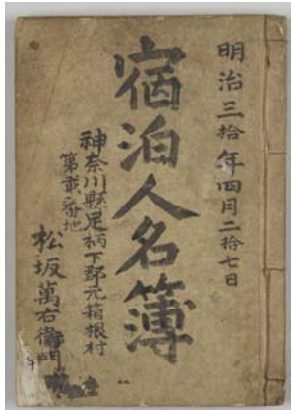 明治三拾年四月二拾七日
宿泊人名簿
神奈川縣足柄下郡元箱根村
第貳番地
松坂萬右衛門